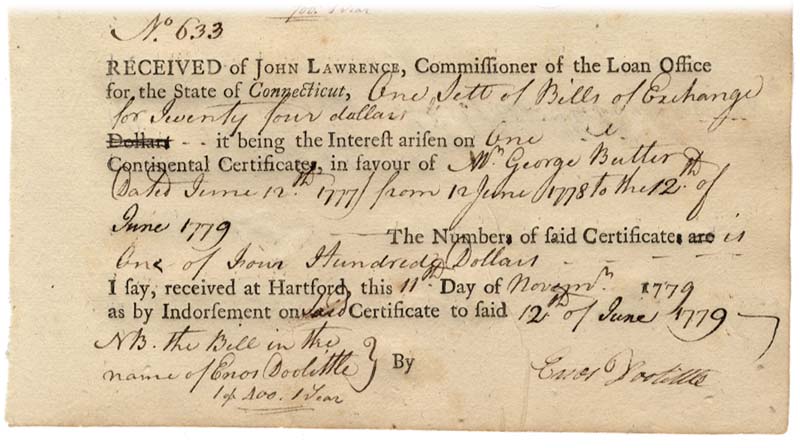 No. 633
RECEIVED of JOHN LAWRENCE, Commiſſioner of the Loan Office
for the State of Connecticut, One Sett of Bills of Exchange
for Twenty four dollars
Dollars - - it being the Intereſt ariſen on One
Continental Certificates, in favour of Mr. George Butler
Dated June 12.th 1777 from 12 June 1778 to the 12.th of
June 1779
The Numbers of ſaid Certificates are is
One of Four Hundred Dollars - - - -
I ſay, received at Hartford, this 11th Day of Novemr. 1779
as by Indorſement on ſaid Certificate to ſaid 12th of June 1779
NB. the Bill in the
name of Enos Doolittle } By Enos Doolittle
1 of 400. 1 Year